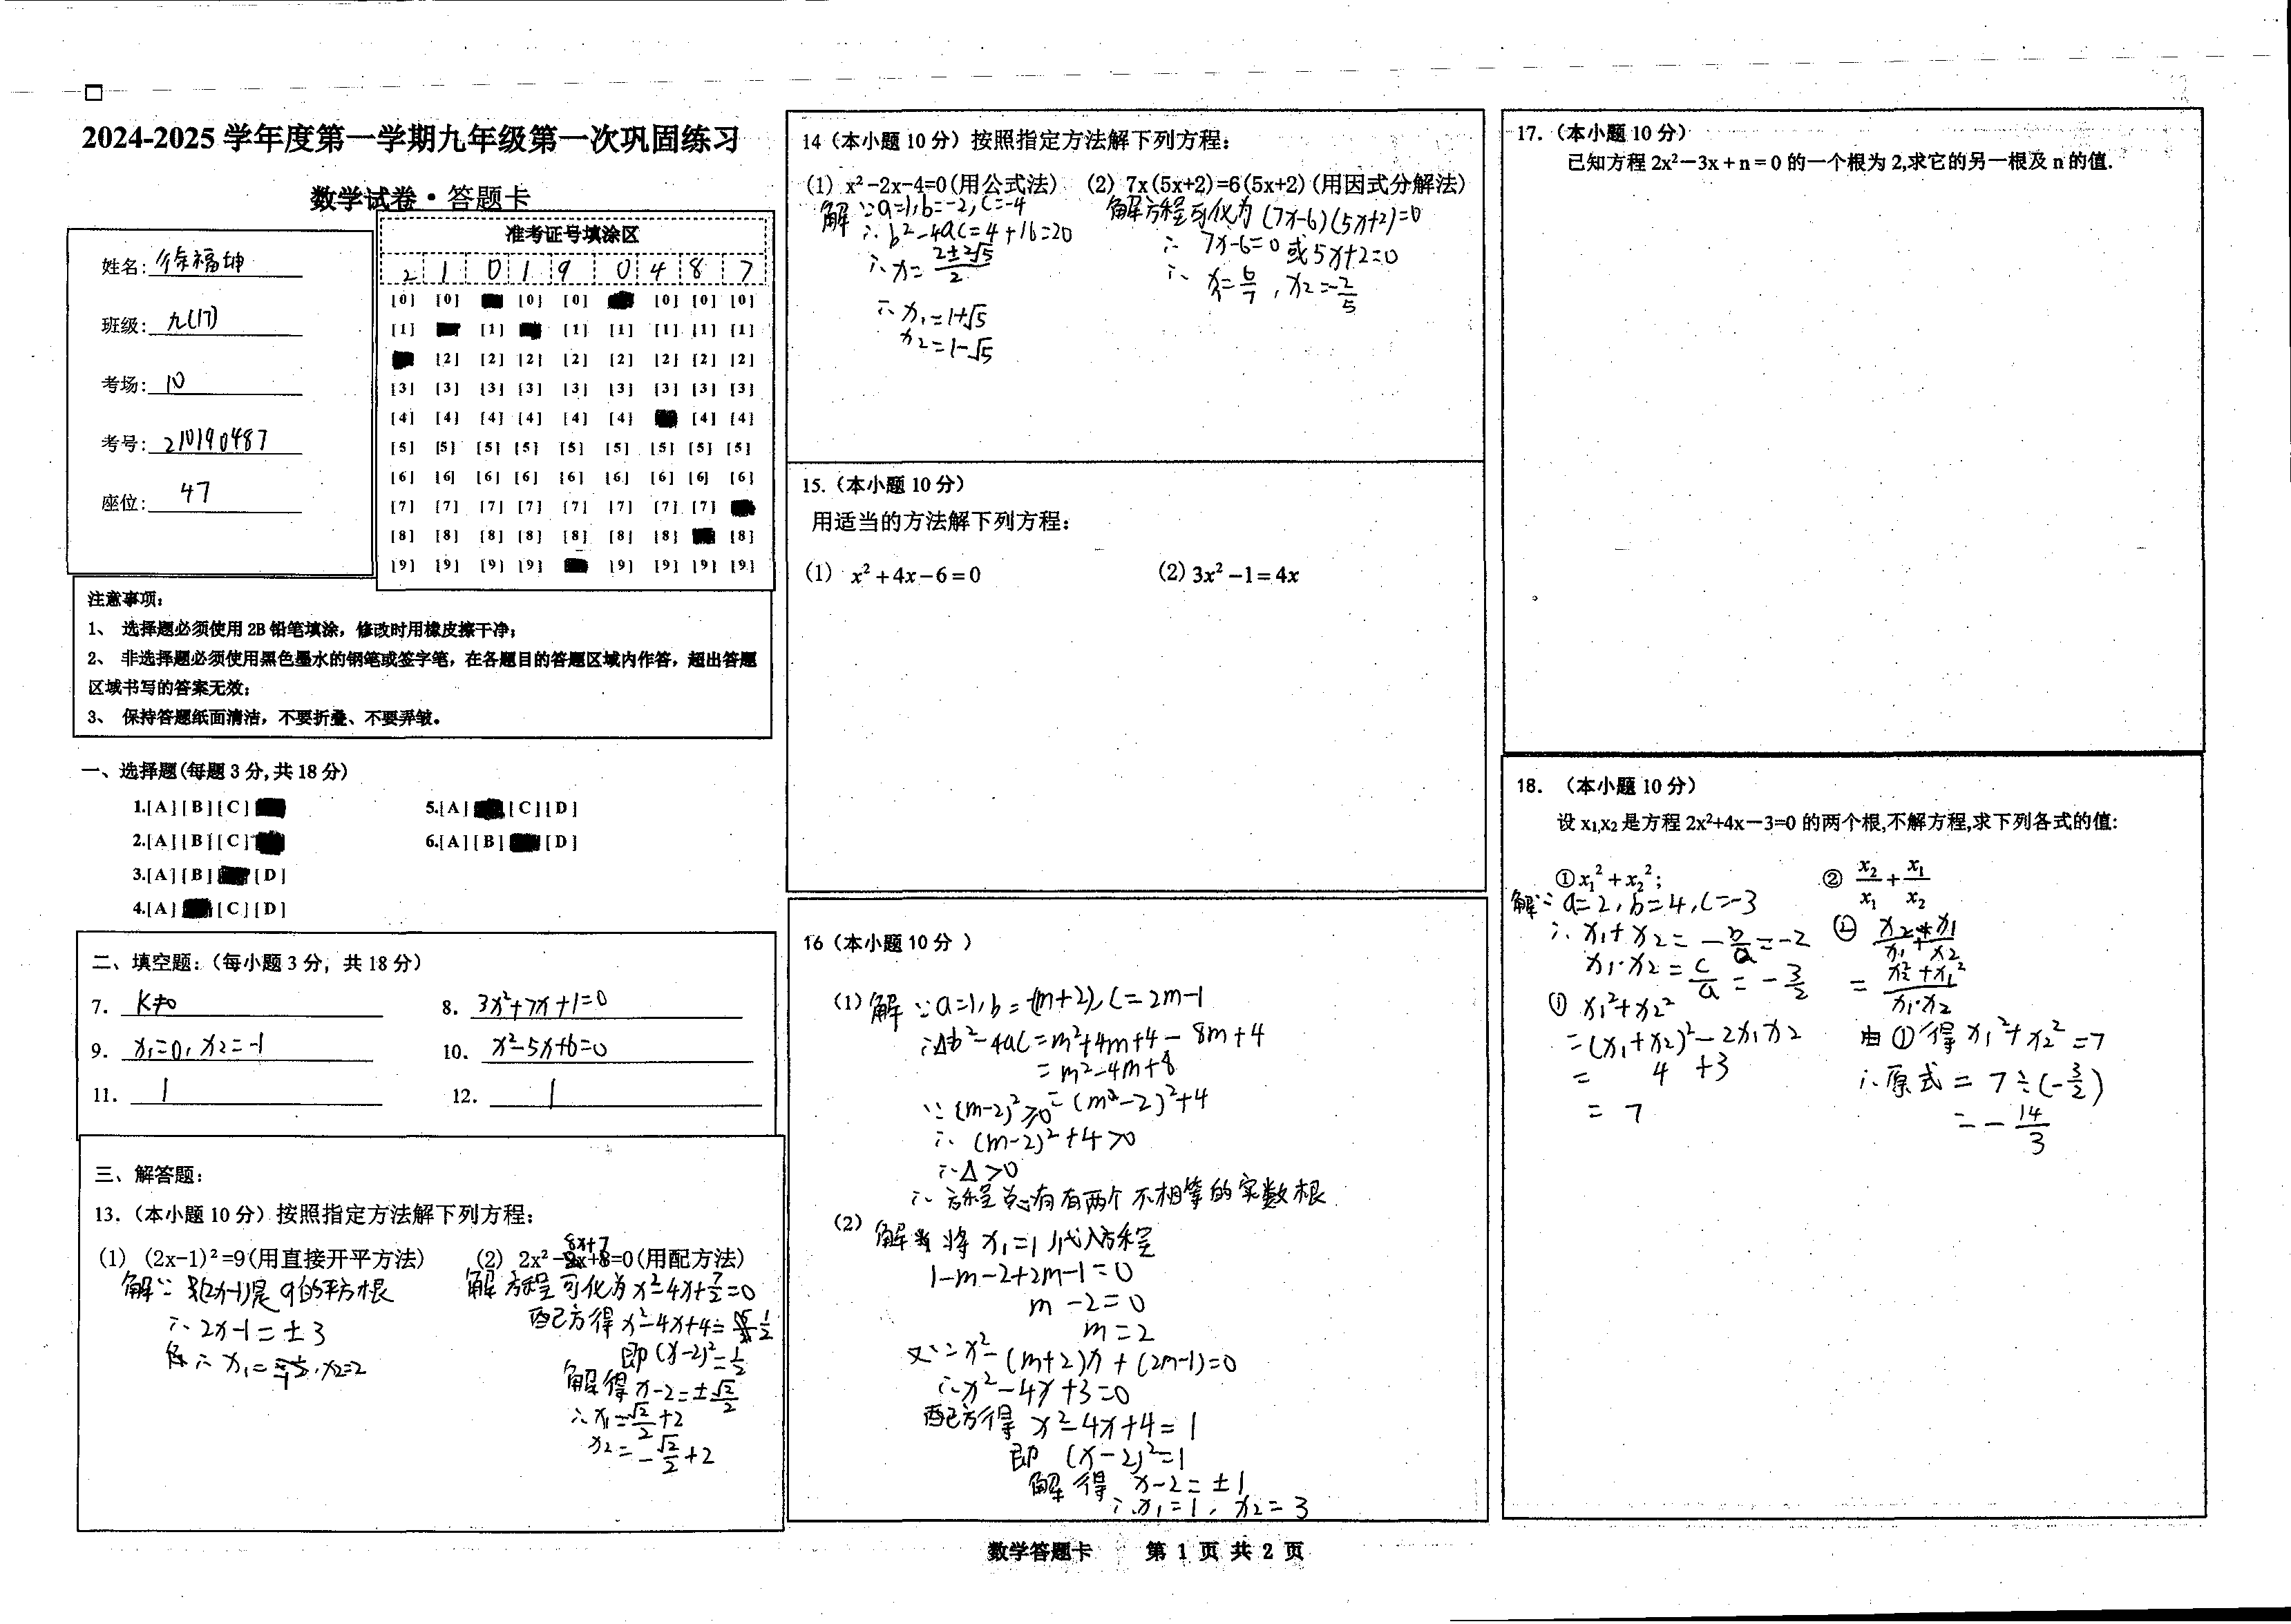 2024-2025 学年度第一学期九年级第一次巩固练习
数学试卷·答题卡
姓名: 徐福坤
班级: 九(17)
考场: 10
考号: 210190487
座位: 47
准考证号填涂区
2 1 0 1 9 0 4 8 7
[0] [0] [0] [0] [0] [0] [0]
[1] [1] [1] [1] [1] [1] [1]
[2] [2] [2] [2] [2] [2] [2] [2]
[3] [3] [3] [3] [3] [3] [3] [3] [3]
[4] [4] [4] [4] [4] [4] [4] [4]
[5] [5] [5] [5] [5] [5] [5] [5] [5]
[6] [6] [6] [6] [6] [6] [6] [6] [6]
[7] [7] [7] [7] [7] [7] [7] [7]
[8] [8] [8] [8] [8] [8] [8] [8]
[9] [9] [9] [9] [9] [9] [9] [9]
注意事项:
1、 选择题必须使用 2B 铅笔填涂，修改时用橡皮擦干净;
2、 非选择题必须使用黑色墨水的钢笔或签字笔，在各题目的答题区域内作答，超出答题
区域书写的答案无效;
3、 保持答题纸面清洁，不要折叠、不要弄皱。
一、选择题(每题 3 分,共 18 分)
1.[A][B][C]
2.[A][B][C]
3.[A][B] [D]
4.[A] [C][D]
5.[A] [C][D]
6.[A][B] [D]
二、填空题:（每小题 3 分，共 18 分）
7. k≠0 8. 3x²+7x+1=0
9. x₁=0, x₂=-1 10. x²-5x+6=0
11. 1 12. 1
三、解答题:
13.（本小题 10 分）按照指定方法解下列方程:
(1) (2x-1)²=9(用直接开平方法)
解∵ (2x-1)是9的平方根
∴ 2x-1=±3
∴ x₁=-1, x₂=2
8x+7
(2) 2x²-8x+8=0(用配方法)
解 方程可化为 x²-4x+7/2=0
配方得 x²-4x+4=1/2
即 (x-2)²=1/2
解得 x-2=±√2/2
∴ x₁=√2/2+2
x₂=-√2/2+2
14（本小题 10 分）按照指定方法解下列方程:
(1) x²-2x-4=0(用公式法)
解 ∵a=1,b=-2,c=-4
∴ b²-4ac=4+16=20
∴ x=(2±2√5)/2
∴ x₁=1+√5
x₂=1-√5
(2) 7x(5x+2)=6(5x+2)(用因式分解法)
解方程可化为 (7x-6)(5x+2)=0
∴ 7x-6=0 或 5x+2=0
∴ x₁=6/7, x₂=-2/5
15.（本小题 10 分）
用适当的方法解下列方程:
(1) x²+4x-6=0 (2) 3x²-1=4x
16（本小题 10 分 ）
(1) 解 ∵a=1,b=-(m+2),c=2m-1
∴Δb²-4ac=m²+4m+4-8m+4
=m²-4m+8
=(m-2)²+4
∵ (m-2)²≥0
∴ (m-2)²+4>0
∴Δ>0
∴ 方程总有有两个不相等的实数根
(2) 解 将 x₁=1 代入方程
1-m-2+2m-1=0
m-2=0
m=2
又∵x²-(m+2)x+(2m-1)=0
∴x²-4x+3=0
配方得 x²-4x+4=1
即 (x-2)²=1
解得 x-2=±1
∴x₁=1, x₂=3
17.（本小题 10 分）
已知方程 2x²-3x+n=0 的一个根为 2,求它的另一根及 n 的值.
18. （本小题 10 分）
设 x₁,x₂ 是方程 2x²+4x-3=0 的两个根,不解方程,求下列各式的值:
①x₁²+x₂²; ② x₂/x₁+x₁/x₂
解∵ a=2,b=4,c=-3
∴ x₁+x₂=-b/a=-2
x₁·x₂=c/a=-3/2
① x₁²+x₂²
=(x₁+x₂)²-2x₁x₂
= 4 +3
= 7
② x₂/x₁+x₁/x₂
=(x₂²+x₁²)/(x₁·x₂)
由①得 x₁²+x₂²=7
∴原式=7÷(-3/2)
=-14/3
数学答题卡 第 1 页 共 2 页